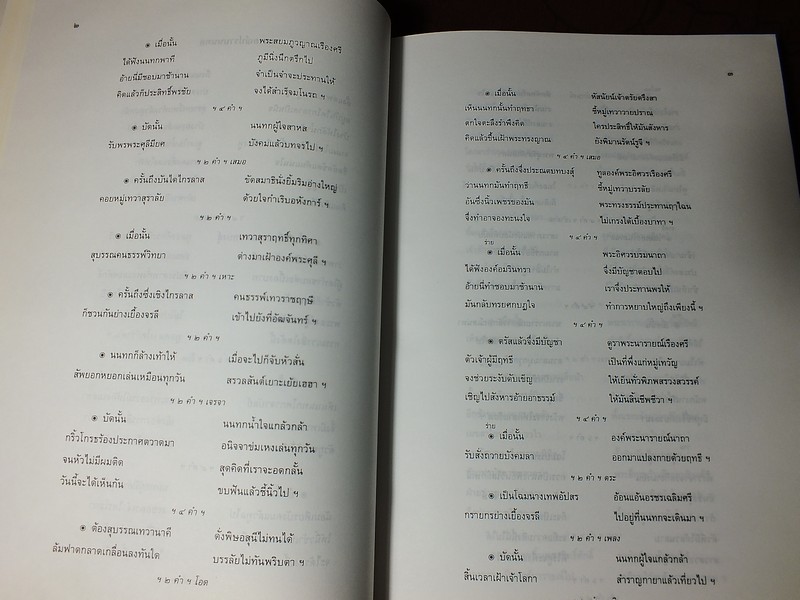 ๒
๏ เมื่อนั้น พระสยมภูวญาณเรืองศรี
ได้ฟังนนทกพาที ภูมีนิ่งนึกตรึกไป
อ้ายนี่มีชอบมาช้านาน จำเป็นจำจะประทานให้
คิดแล้วก็ประสิทธิ์พรชัย จงได้สำเร็จมโนรถ ฯ
ฯ ๔ คำ ฯ
๏ บัดนั้น นนทกผู้ใจสาหส
รับพรพระศุลีมียศ บังคมแล้วบทจรไป ฯ
ฯ ๒ คำ ฯ เสมอ
๏ ครั้นถึงบันไดไกรลาส ขัดสมาธินั่งยิ้มริมอ่างใหญ่
คอยหมู่เทวาสุราลัย ด้วยใจกำเริบอหังการ์ ฯ
ฯ ๒ คำ ฯ
๏ เมื่อนั้น เทวาสุราฤทธิ์ทุกทิศา
สุบรรณคนธรรพ์วิทยา ต่างมาเฝ้าองค์พระศุลี ฯ
ฯ ๒ คำ ฯ เหาะ
๏ ครั้นถึงซึ่งเชิงไกรลาส คนธรรพ์เทวราชฤาษี
ก็ชวนกันย่างเยื้องจรลี เข้าไปยังที่อัฒจันทร์ ฯ
ฯ ๒ คำ ฯ
๏ นนทกก็ล้างเท้าให้ เมื่อจะไปก็จับหัวสั่น
สัพยอกหยอกเล่นเหมือนทุกวัน สรวลสันต์เยาะเย้ยเฮฮา ฯ
ฯ ๒ คำ ฯ เจรจา
๏ บัดนั้น นนทกน้ำใจแกล้วกล้า
กริ้วโกรธร้องประกาศตวาดมา อนิจจาข่มเหงเล่นทุกวัน
จนหัวไม่มีผมติด สุดคิดที่เราจะอดกลั้น
วันนี้จะได้เห็นกัน ขบฟันแล้วชี้นิ้วไป ฯ
ฯ ๔ คำ ฯ
๏ ต้องสุบรรณเทวานาคี ดั่งพิษอสุนีไม่ทนได้
ล้มฟาดกลาดเกลื่อนลงทันใด บรรลัยไม่ทันพริบตา ฯ
ฯ ๒ คำ ฯ โอด
๓
๏ เมื่อนั้น หัสนัยน์เจ้าตรัยตรึงสา
เห็นนนทกนั้นทำฤทธา ชี้หมู่เทวาวายปราณ
ตกใจตะลึงรำพึงคิด ใครประสิทธิ์ให้มันสังหาร
คิดแล้วขึ้นเฝ้าพระทรงญาณ ยังพิมานรัตน์รูจี ฯ
ฯ ๔ คำ ฯ เสมอ
๏ ครั้นถึงจึ่งประณตบทบงสุ์ ทูลองค์พระอิศวรเรืองศรี
ว่านนทกมันทำฤทธี ชี้หมู่เทวาบรรลัย
อันซึ่งนิ้วเพชรของมัน พระทรงธรรม์ประทานฤาไฉน
จึ่งทำอาจองทะนงใจ ไม่เกรงใต้เบื้องบาทา ฯ
ฯ ๔ คำ ฯ
ร่าย
๏ เมื่อนั้น พระอิศวรบรมนาถา
ได้ฟังองค์อมรินทรา จึ่งมีบัญชาตอบไป
อ้ายนี่ทำชอบมาช้านาน เราจึ่งประทานพรให้
มันกลับทรยศกบฏใจ ทำการหยาบใหญ่ถึงเพียงนี้ ฯ
ฯ ๔ คำ ฯ
๏ ตรัสแล้วจึ่งมีบัญชา ดูราพระนารายณ์เรืองศรี
ตัวเจ้าผู้มีฤทธี เป็นที่พึ่งแก่หมู่เทวัญ
จงช่วยระงับดับเข็ญ ให้เย็นทั่วพิภพสรวงสวรรค์
เชิญไปสังหารอ้ายอาธรรม์ ให้มันสิ้นชีพชีวา ฯ
ฯ ๔ คำ ฯ
ร่าย
๏ เมื่อนั้น องค์พระนารายณ์นาถา
รับสั่งถวายบังคมลา ออกมาแปลงกายด้วยฤทธี ฯ
ฯ ๒ คำ ฯ ตระ
๏ เป็นโฉมนางเทพอัปสร อ้อนแอ้นอรชรเฉลิมศรี
กรายกรย่างเยื้องจรลี ไปอยู่ที่นนทกจะเดินมา ฯ
ฯ ๒ คำ ฯ เพลง
๏ บัดนั้น นนทกผู้ใจแกล้วกล้า
สิ้นเวลาเฝ้าเจ้าโลกา สำราญกายาแล้วเที่ยวไป ฯ